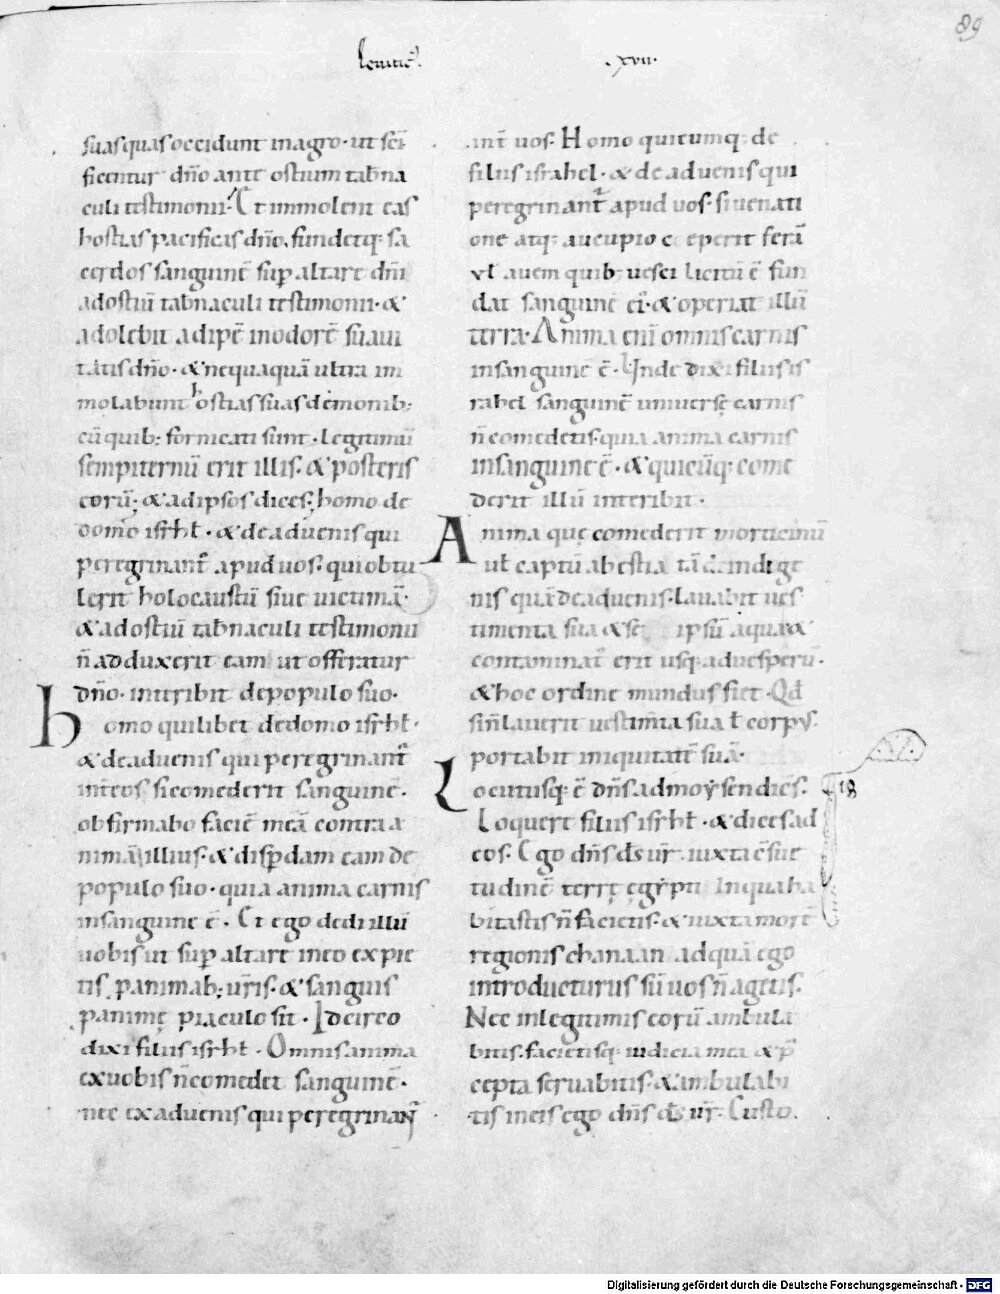 89
leuitic̄.
.xvii.
suas quas occidunt in agro. ut sc̄i
ficentur dn̄o ante ostium tab̄na
culi testimonii. Et immolent eas
hostias pacificas dn̄o. fundetq; sa
cerdos sanguinē sup̄ altare dn̄i
ad ostiū tab̄naculi testimonii. &
adolebit adipē in odorē suaui
tatis dn̄o. & nequaquā ultra im
molabunt hostias suas demonib;
cū quib; fornicati sunt. Legitimū
sempiternū erit illis. & posteris
eorū; & ad ipsos dices. homo de
domo isrl̄. & de aduenis qui
peregrinant̄ apud uos. qui obtu
lerit holocaustū siue uictimā.
& ad ostiū tab̄naculi testimonii
n̄ adduxerit eam ut offeratur
dn̄o. interibit de populo suo.
homo quilibet de domo isrl̄.
& de aduenis qui peregrinant̄
int̄ eos si comederit sanguinē.
obfirmabo faciē meā contra a
nimā illius. & disp̄dam eam de
populo suo. quia anima carnis
in sanguine ē. Et ego dedi illū
uobis ut sup̄ altare meo expie
tis p̄ animab; ur̄is. & sanguis
p̄ animę piaculo sit. Idcirco
dixi filiis isrl̄. Omnis anima
ex uobis n̄ comedet sanguinē.
nec ex aduenis qui peregrinan
int̄ uos. Homo quicumq; de
filiis israhel. & de aduenis qui
peregrinant̄ apud uos. si uenati
one atq; aucupio ceperit ferā
vl̄ auem quib; uesci licitū ē fun
dat sanguinē ei'. & operiat illū
terra. Anima eni̅ omnis carnis
in sanguine ē. Unde dixi filiis is
rahel sanguinē uniuersę carnis
n̄ comedetis. quia anima carnis
in sanguine ē. & quicūq; come
derit illū interibit.
Anima quę comederit morticinū
ul̄ captū a bestia tā de indige
nis quā de aduenis. lauabit ues
timenta sua & se ipsū aqua &
contaminat̄ erit usq; ad uesperū.
& hoc ordine mundus fiet. Qd̄
si n̄ lauerit uestim̄ta sua l̄ corpus.
portabit iniquitatē suā.
Locutusq; ē dn̄s ad moysen dicēs.
18
Loquere filiis isrl̄. & dices ad
eos. Ego dn̄s ds̄ ur̄. iuxta c̄sue
tudinē terrę egypti in qua ha
bitastis n̄ facietis. & iuxta morē
regionis chanaan ad quā ego
introducturus sū uos n̄ agetis.
Nec in legitimis eorū ambula
bitis. facietisq; iudicia mea & p̄
cepta seruabitis. & ambulabi
tis in eis ego dn̄s ds̄ ur̄. Custo
Digitalisierung gefördert durch die Deutsche Forschungsgemeinschaft - DFG